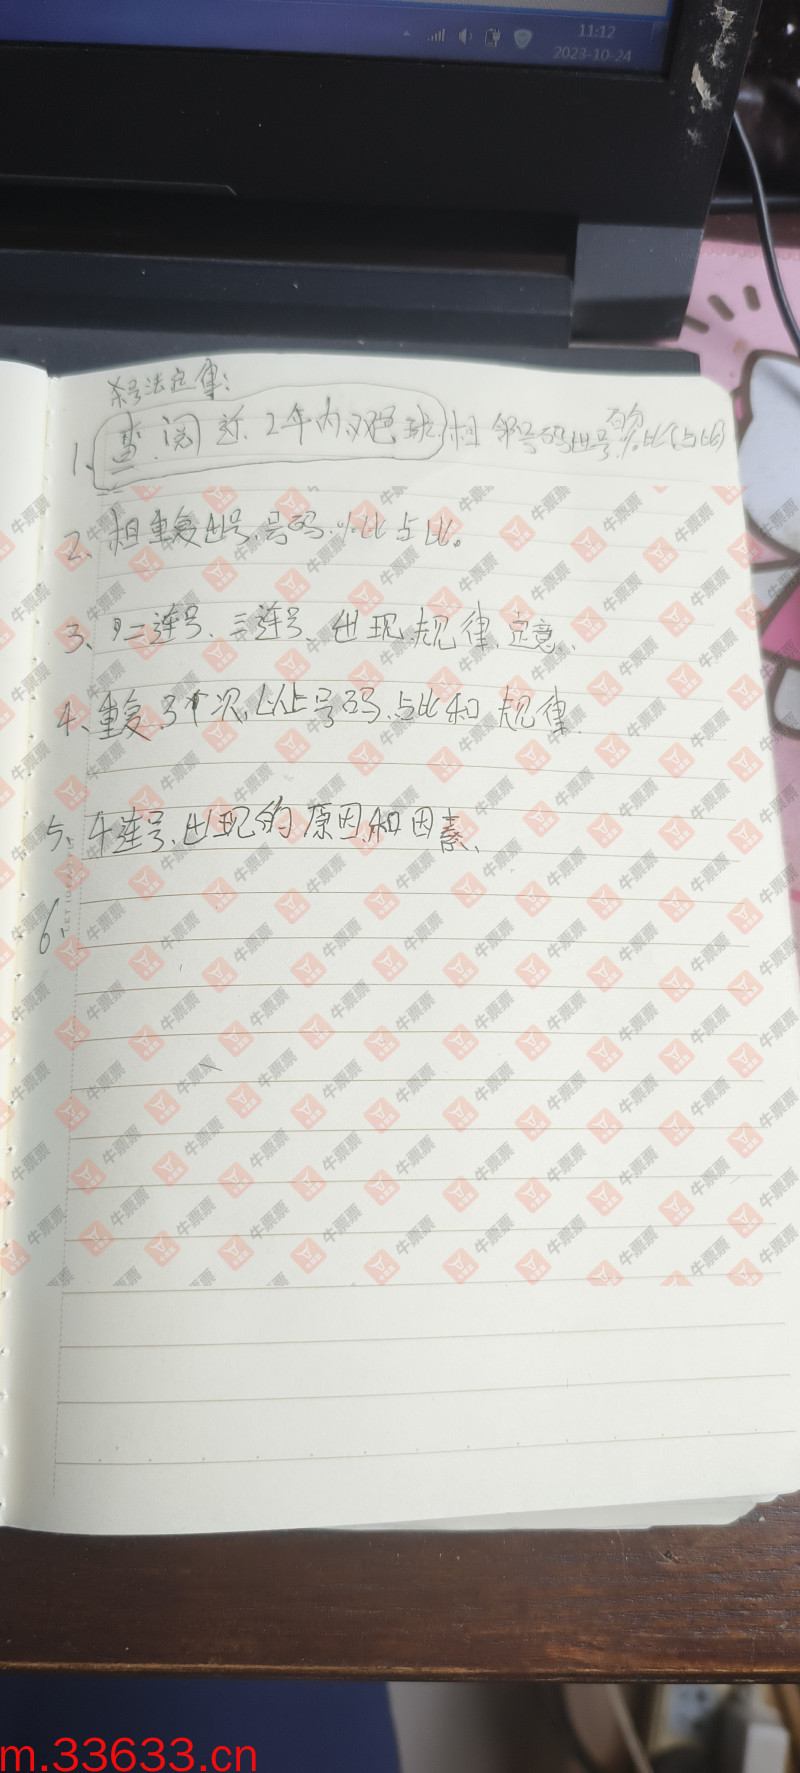 11:12
2023-10-24
杀号法定律:
1、查阅近2年内双色球相邻号码出号百分%比(占比)
2、相重复出号、号码.%比占比。
3、二连号、三连号、出现规律、定意、
4、重复3个次,以上号码、占比和规律.
5、牛连号、出现的原因和因素、
6、
牛票票
m.33633.cn